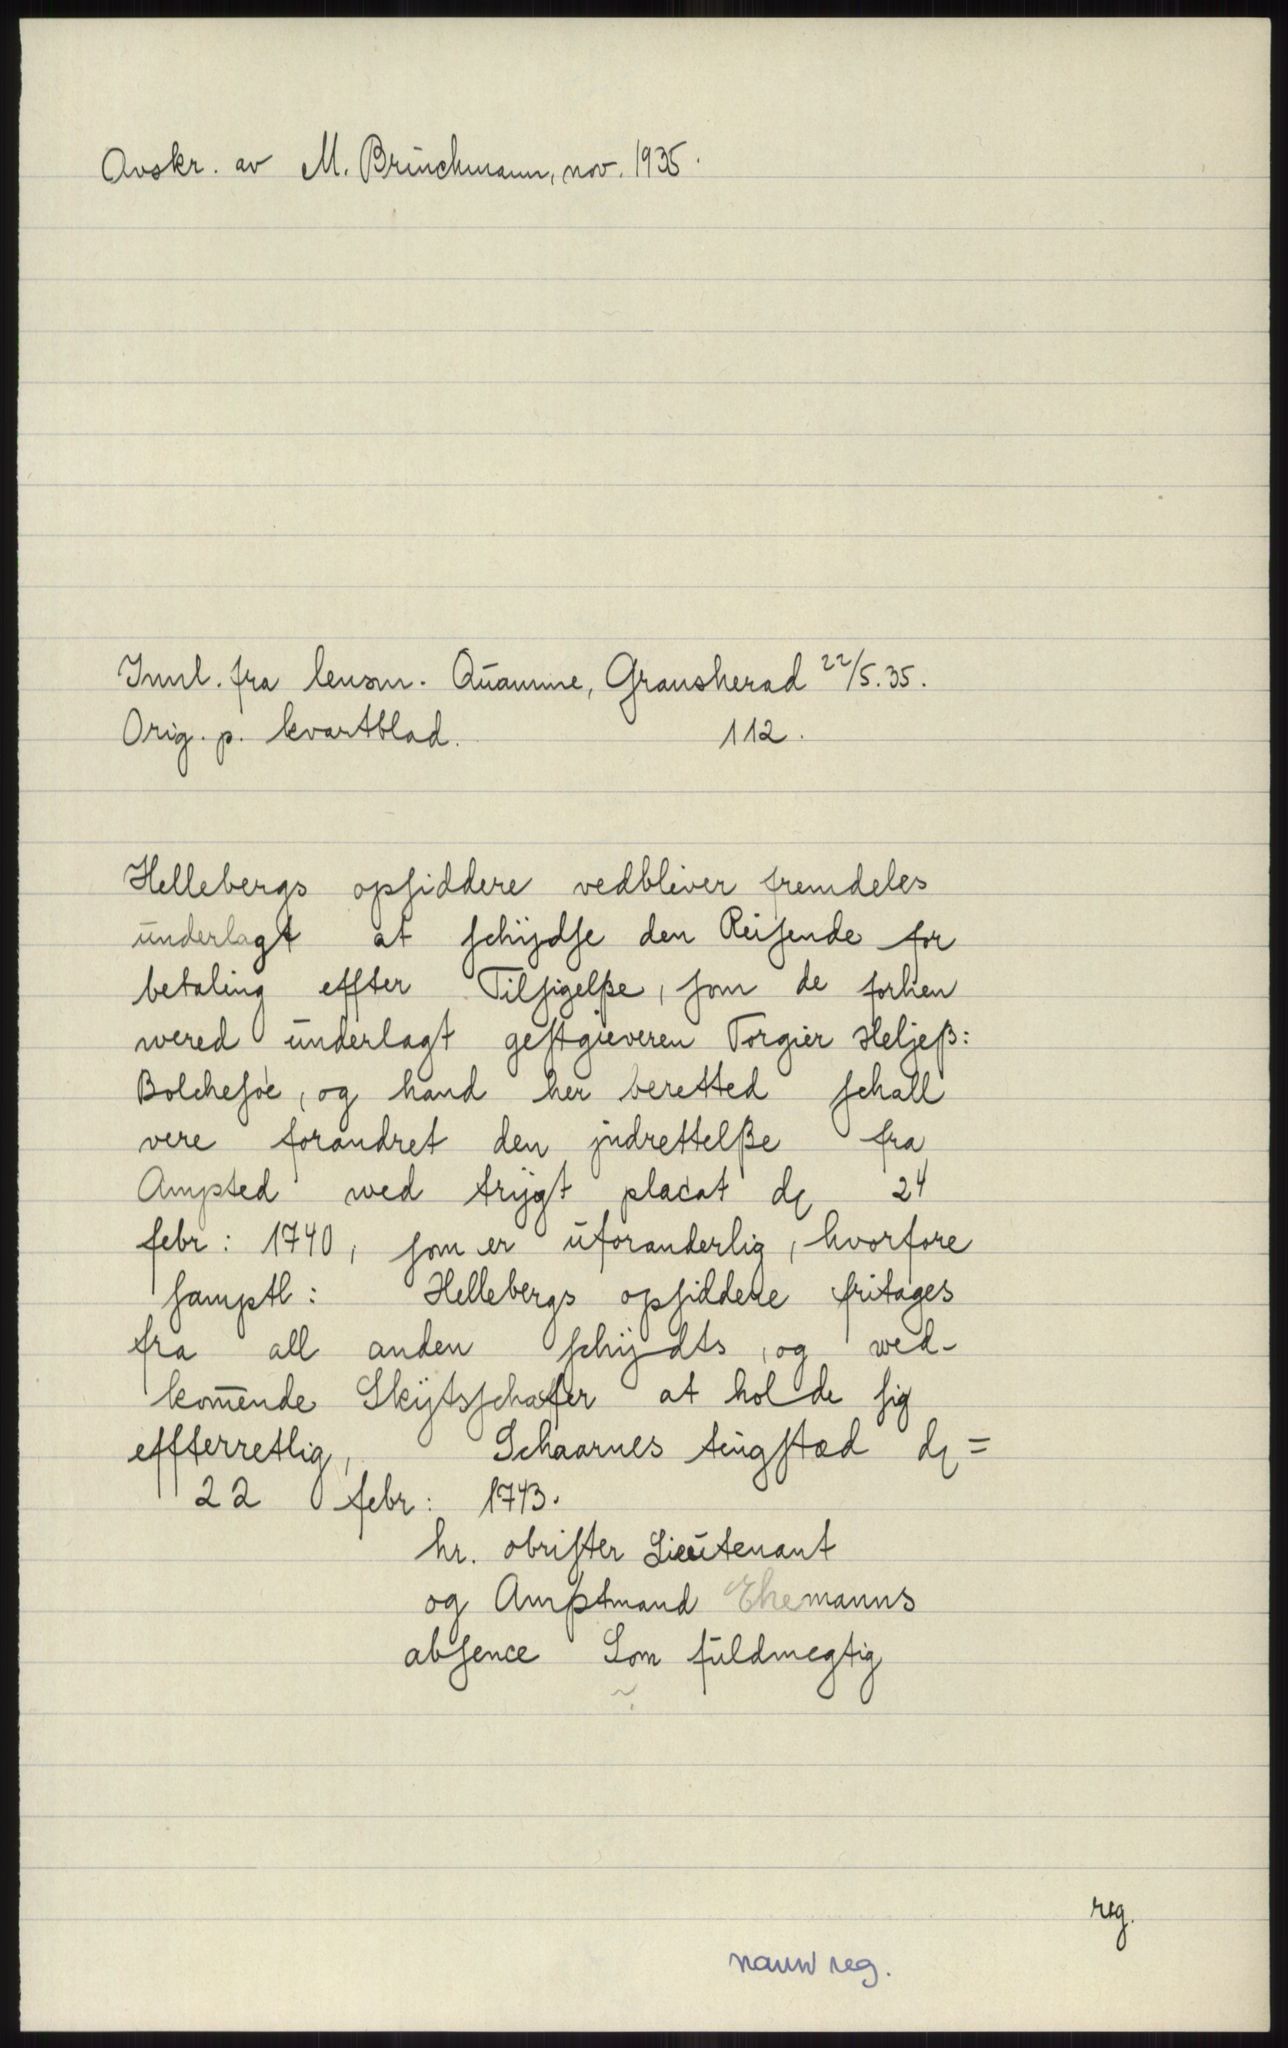 Avskr. av M. Brünchmann, nov. 1935.
Innl. fra lensm. Qüamme, Gransherad 22/5.35.
Orig. p. kvartblad. 112.
Hellebergs opsiddere vedbliver fremdeles
ünderlagt at schÿdse den Reisende for
betaling effter Tilsigelße, som de forhen
wered ünderlagt gestgieveren Torgier Heljeß:
Bolchesøe, og hand her beretted schall
vere forandret den jndrettelße fra
Ampted wed trÿgt placat dę 24
febr: 1740, som er üforanderlig, hvorfore
samptl: Hellebergs opsiddere fritages
fra all anden schÿdts, og wed-
kom̄ende Skÿtsschaffer at holde sig
effterretlig, Schaarnes tingstæd dę =
22 febr: 1743.
hr. obrister Lieütenant
og Amptmand Ehemanns
absence Som füldmegtig
reg.
navnreg.